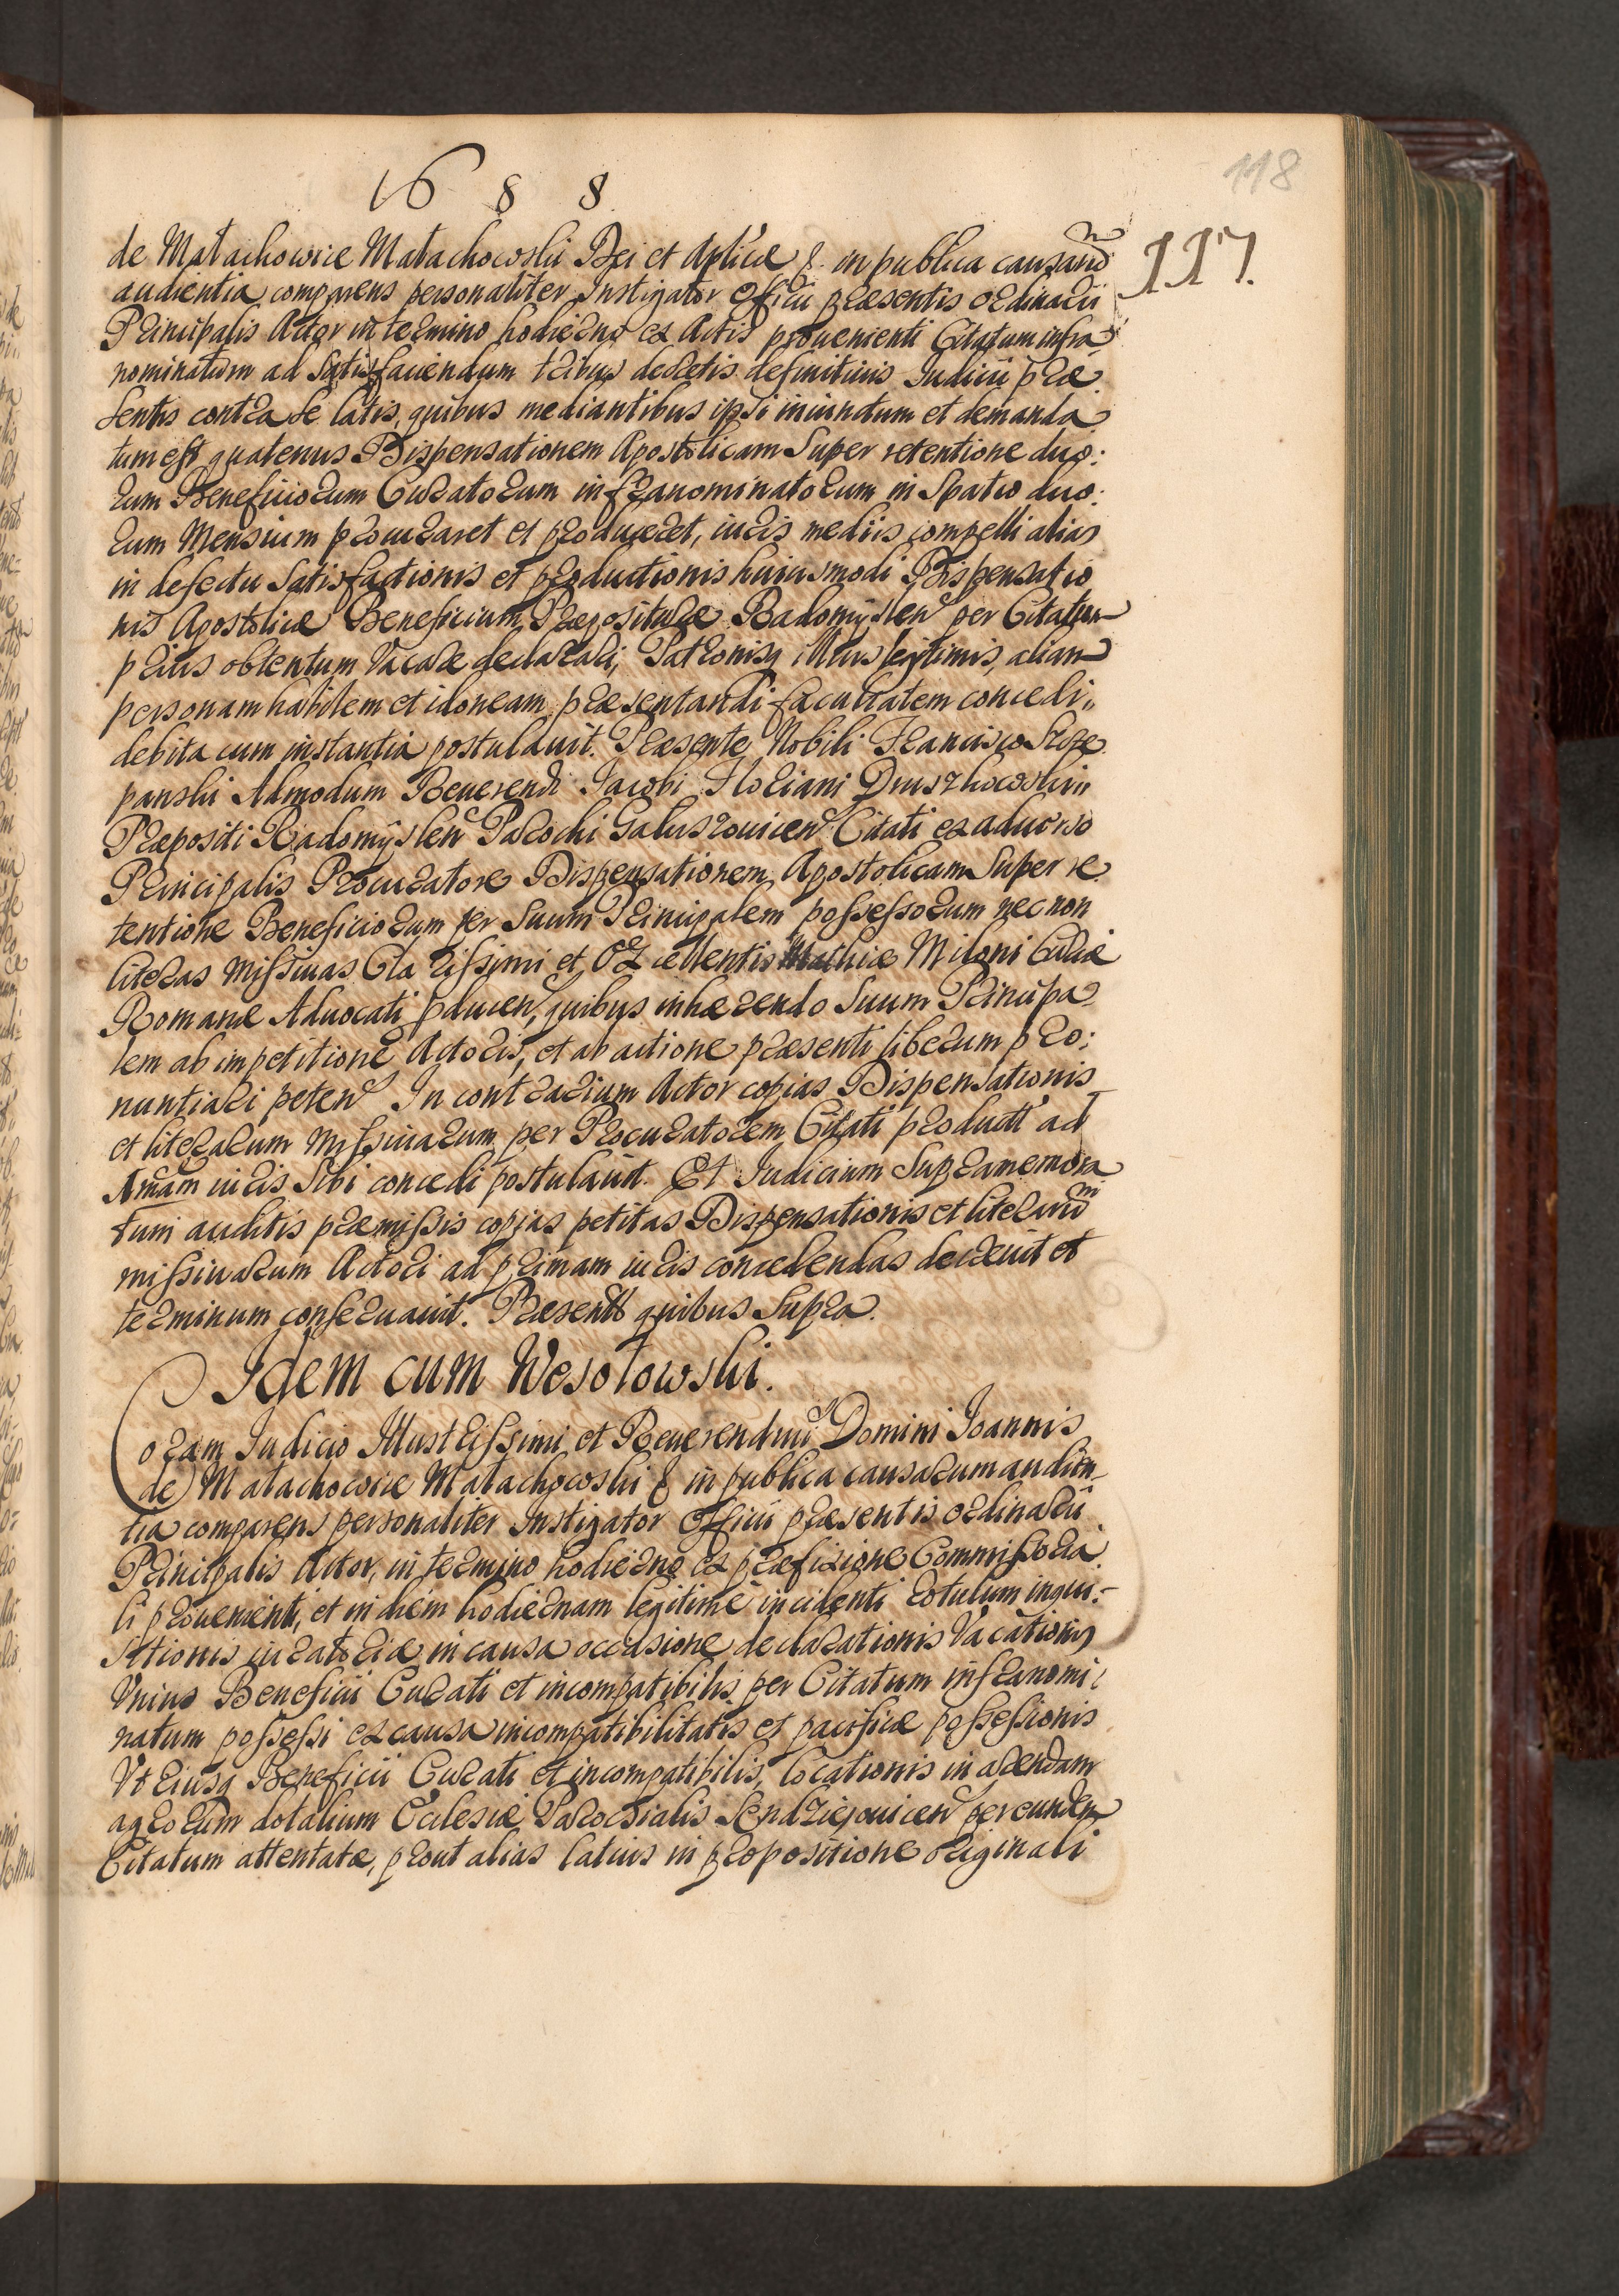 1688
118
117.
de Małachowice Małachowski Dei et Aplicæ & in publica causarũ
audientia comparens personaliter Instigator Officii præsentis ordinarii
Principalis Actor in termino hodierno ex Actis proueniẽti Citatum infra
nominatum ad Satisfaciendum tribus decretis definitiuis Iudicii præ
sentis contra se latis, quibus mediantibus ipsi iniunctum et demanda
tum est quatenus Dispensationem Apostolicam Super retentione duo:
rum Beneficiorum Curatorum infranominatorum in Spatio duo:
rum Mensium procuraret et produceret, iuris mediis compelli alias
in defectu Satisfactionis et productionis huiusmodi Dispensatio
nis Apostolicæ Beneficium Præpositurae Radomyslen per Citatum
prius obtentum Vacare declarari, Patronisq illius legitimis, aliam
personam habilem et idoneam præsentandi facultatem concedi
debita cum instantia postulauit. Præsente Nobili Francisco Szcze
panski Admodum Reuerendi Iacobi Floriani Druszkowski
Præpositi Radomyslen Parochi Galuszouicen Citati ex aduerso
Principalis Procuratore Dispensationem Apostolicam Super re
tentione Beneficiorum per Suum Principalem possessorum nec non
literas missiuas Clarissimi et Excellentis Mathiæ Miloni Curiæ
Romanæ Aduocati pducen, quibus inhærendo Suum Principa
lem ab impetitione Actoris, et ab actione præsenti liberum pro:
nuntiari peten In contrarium Actor copias Dispensationis
et literarum missiuarum per Procuratorem Citati product ad
Amam iuris Sibi concedi postulauit. Et Iudicium Supramemora
tum auditis præmissis copias petitas Dispensationis et literarũ
missiuarum Actori ad primam iuris concedendas decreuit et
terminum conseruauit. Præsentt quibus Supra.
Idem cum Wesołowski.
Coram Iudicio Illustrissimi et Reuerendmi Domini Ioannis
de Małachowice Małachowski & in publica causarum audien
tia comparens personaliter Instigator Officii præsentis ordinarii
Principalis Actor, in termino hodierno ex præfixione Commissoria
li prouenienti, et in diem hodiernam legitime incidenti rotulum inqui:
sitionis iuratoriæ in causa occasione declarationis Vacationis
Vnius Beneficii Curati et incompatibilis per Citatum infranomi:
natum possessi ex causa incompatibilitatis et pacificæ possessionis
Vtriusq Beneficii Curati et incompatibilis, locationis in arendam
agrorum dotalium Ecclesiæ Parochialis Sendziejouicen per eundem
Citatum attentatæ, prout alias latius in propositione originali